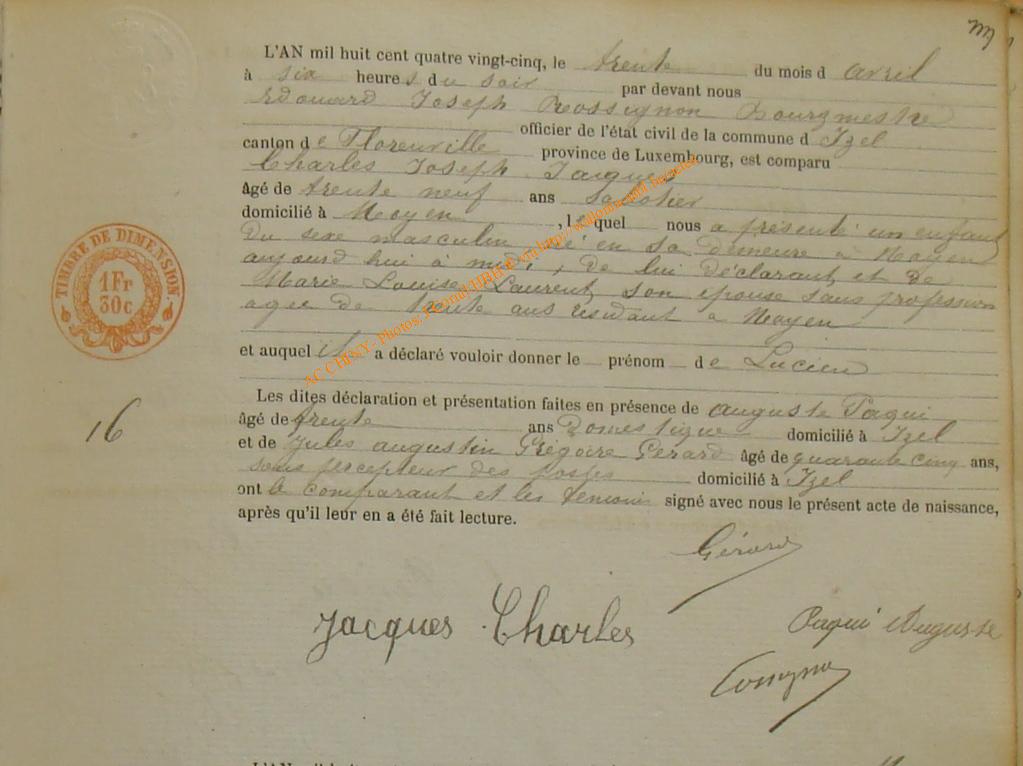 L'AN mil huit cent quatre vingt-cinq, le trente du mois d avril
à six heures du soir par devant nous
Edouard Joseph Rossignon Bourgmestre
officier de l'état civil de la commune d Izel
canton de Florenville province de Luxembourg, est comparu
Charles Joseph Jacques
âgé de trente neuf ans Sabotier
domicilié à Moyen , lequel nous a présenté un enfant
du sexe masculin né en sa demeure à Moyen
aujourd hui à midi, de lui déclarant et de
Marie Louise Laurent, son épouse sans profession
agée de trente ans résidant à Moyen
et auquel il a déclaré vouloir donner le prénom de Lucien
Les dites déclaration et présentation faites en présence de auguste Paqui
âgé de trente ans Domestique domicilié à Izel
et de Jules augustin Grégoire Gérard âgé de quarante cinq ans,
sous percepteur des postes domicilié à Izel
ont le comparant et les témoins signé avec nous le présent acte de naissance,
après qu'il leur en a été fait lecture.
TIMBRE DE DIMENSION.
1Fr
30c
16
Gérard
Jacques Charles
Paqui Auguste
AC CHINY - Photos